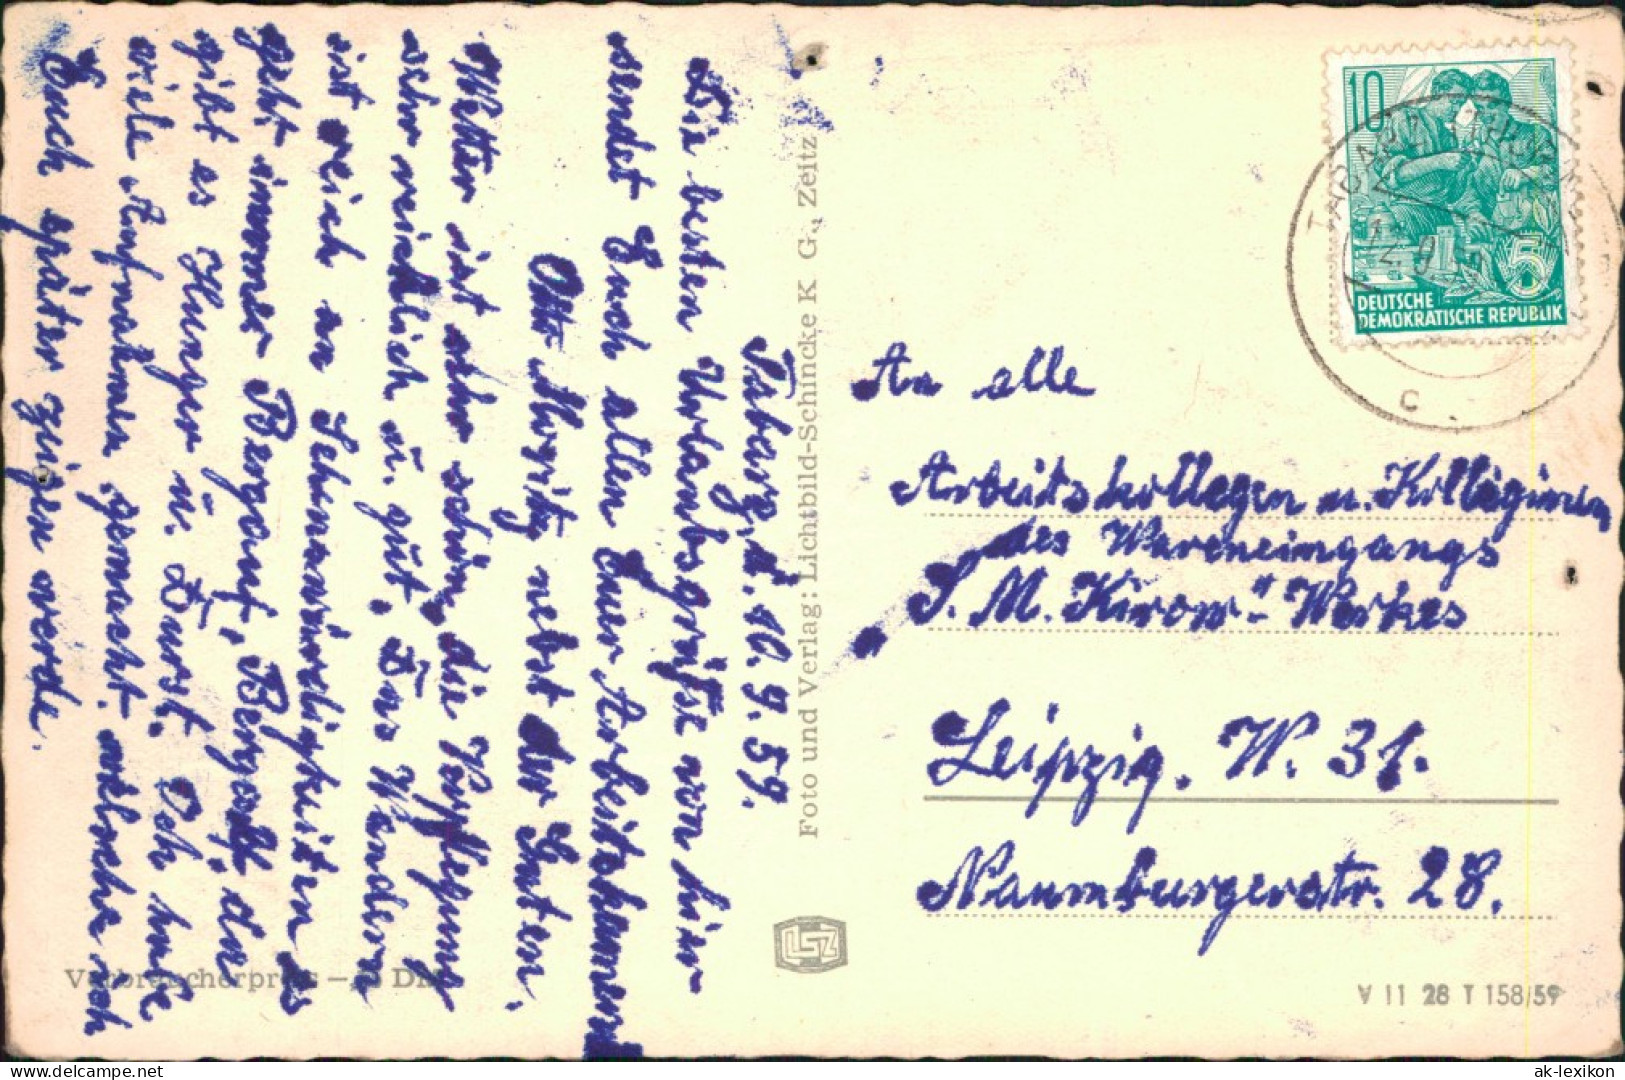 Tabarz, d. 10. 9. 59.
Die besten Urlaubsgrüße von hier
sendet Euch allen Euer Arbeitskamerad
Otto Moritz nebst der Guten.
Wetter ist sehr schön, die Verpflegung
sehr reichlich u. gut. Das Wandern
ist reich an Sehenswürdigkeiten es
geht immer Bergauf, Bergab, da
gibt es Hunger u. Durst. Ich habe
viele Aufnahmen gemacht welche ich
Euch später zeigen werde.
Verbraucherpreis
Foto und Verlag: Lichtbild-Schincke K G., Zeitz
LSZ
10
5
DEUTSCHE
DEMOKRATISCHE REPUBLIK
TABARZ
12. 9. 59
c
An alle
Arbeitskollegen u. Kolleginnen
des Wareneingangs
S. M. Kirow"- Werkes
Leipzig. W. 31.
Naumburgerstr. 28.
V 11 28 T 158/59
delcampe.net
ak-lexikon